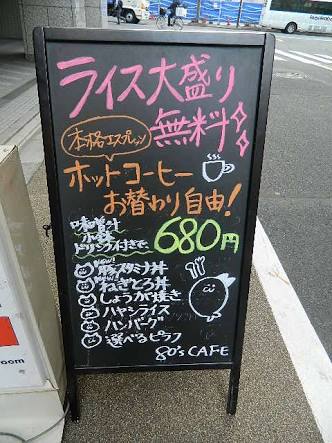 ライス大盛り
無料
本格エスプレッソ
ホットコーヒー
お替わり自由!
味噌汁
小鉢
ドリンク付きで、680円
NEW! 豚スタミナ丼
NEW! ねぎとろ丼
しょうが焼き
ハヤシライス
ハンバーグ
選べるピラフ
80's CAFE
room